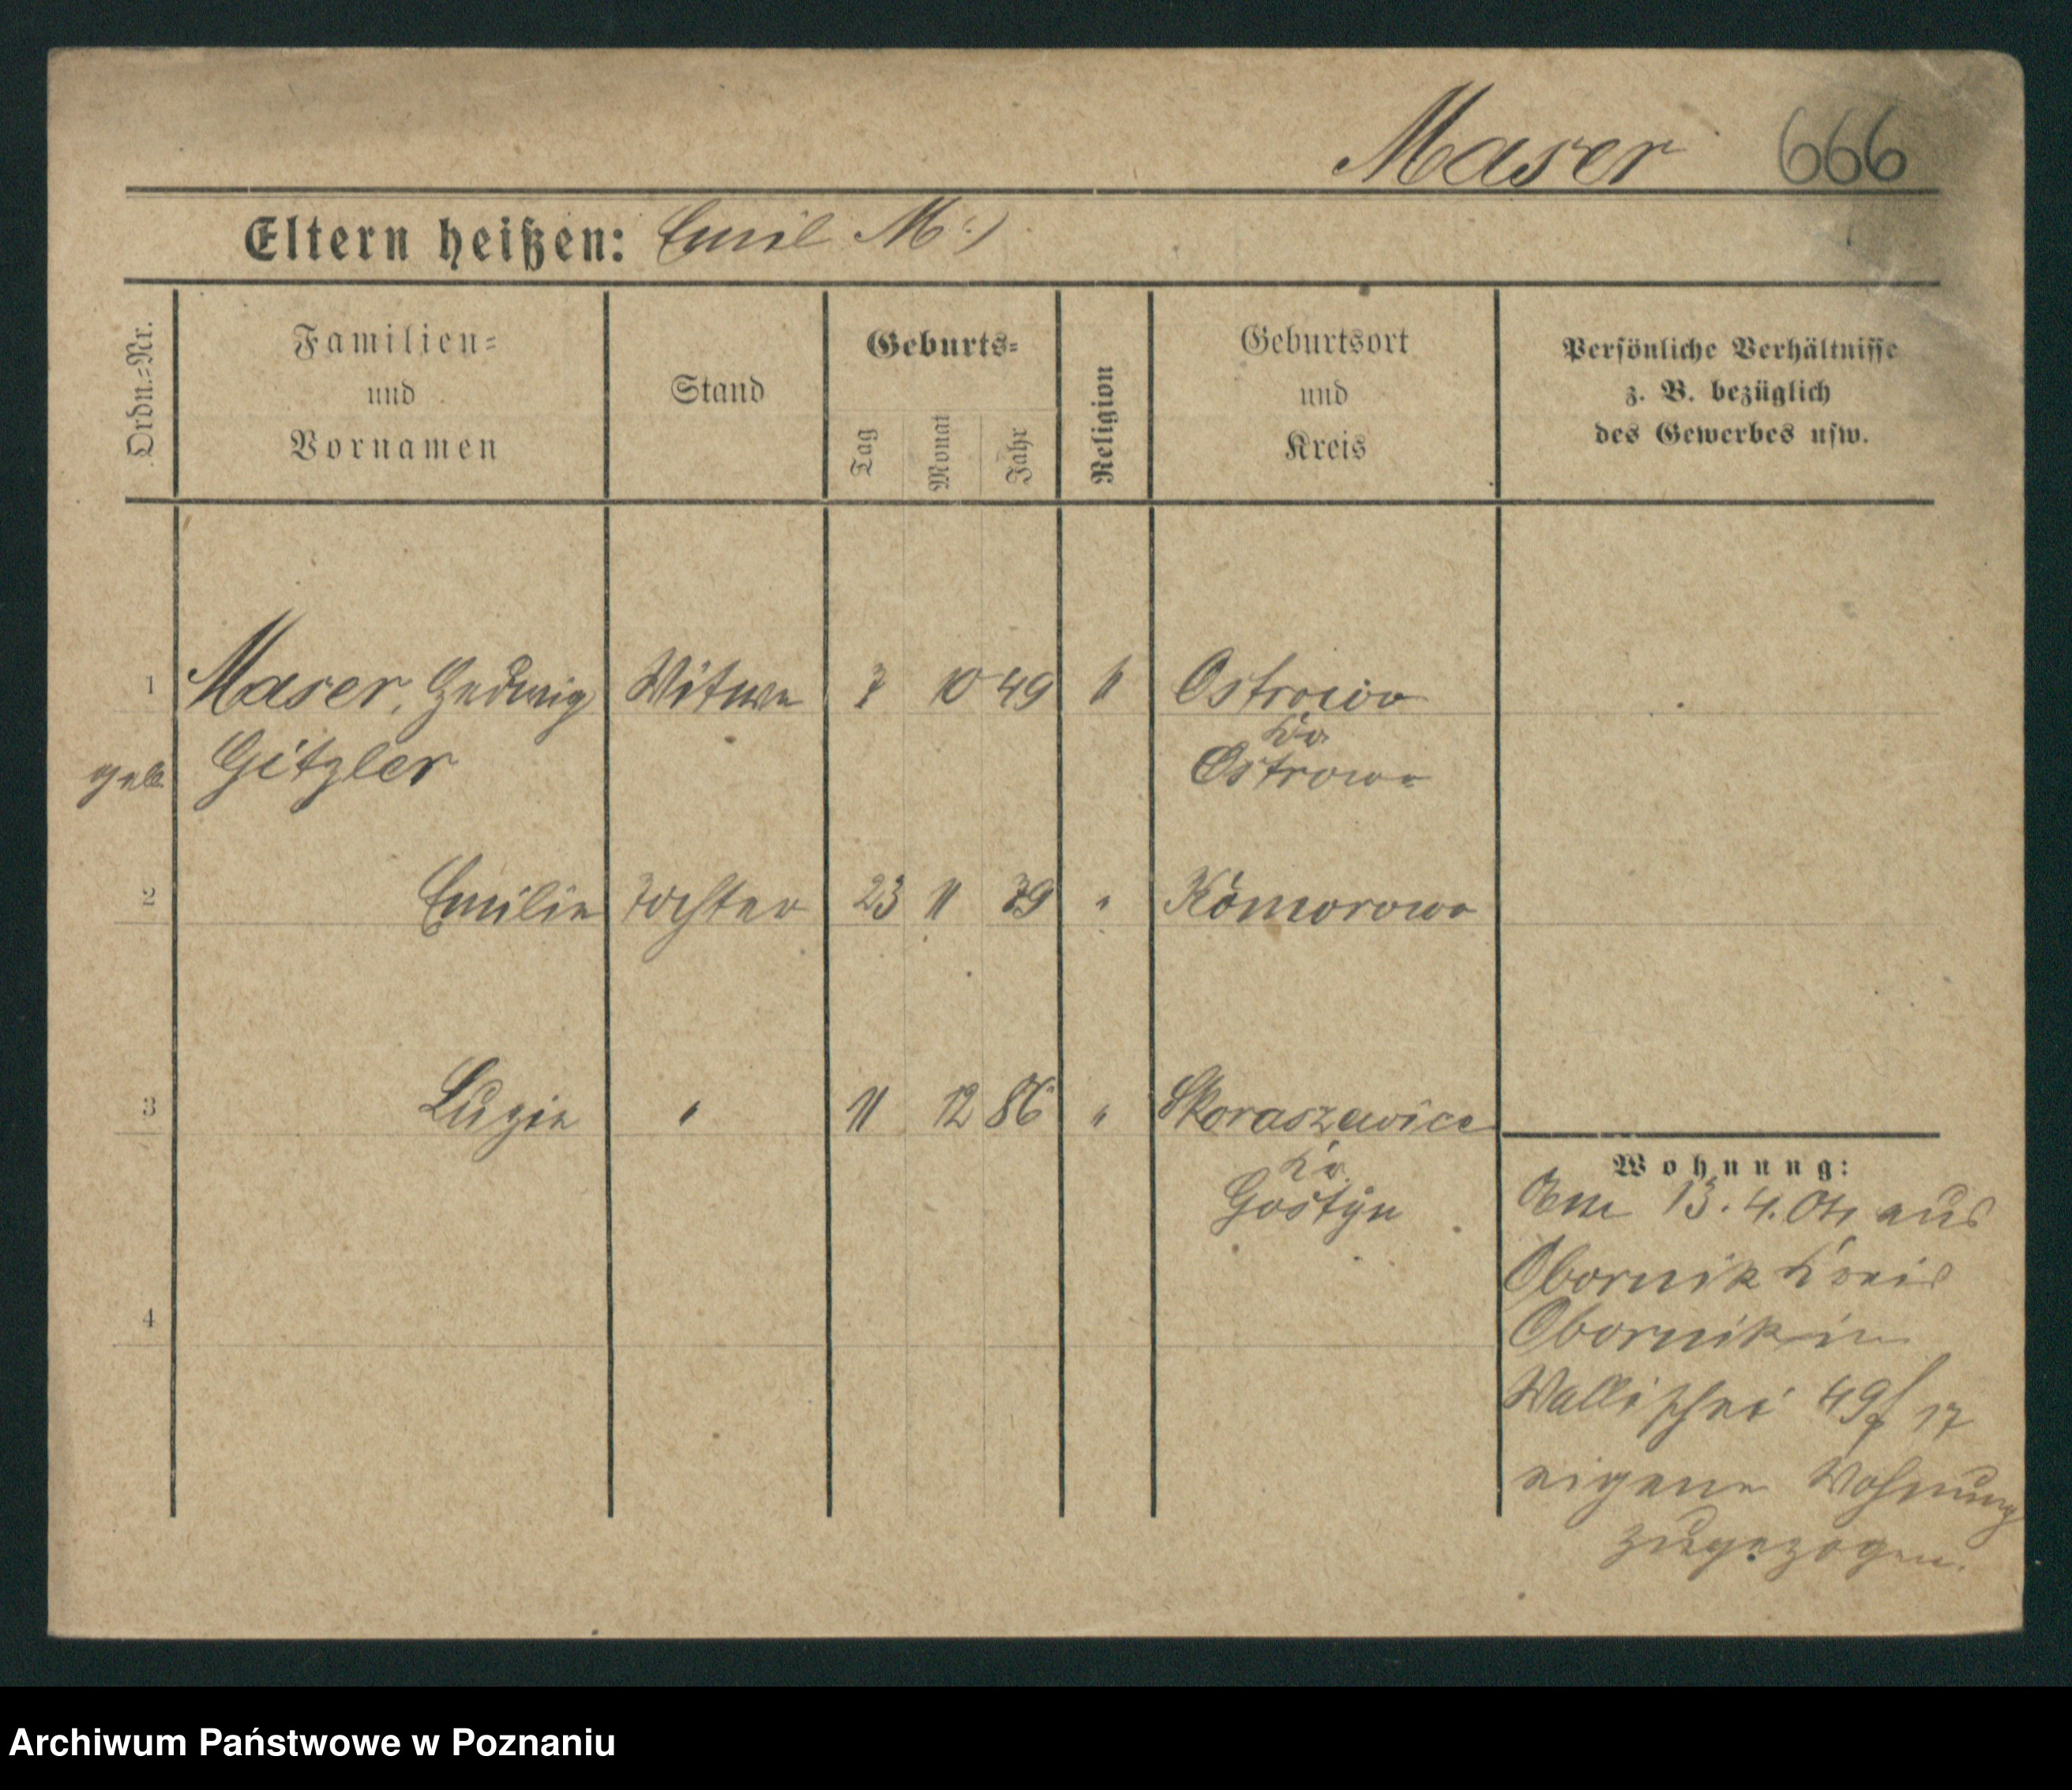 Maser 666
Eltern heißen: Emil M:)
Ordn.=Nr.
Familien=
und
Vornamen
Stand
Geburts=
Tag
Monat
Jahr
Religion
Geburtsort
und
Kreis
Persönliche Verhältnisse
z. B. bezüglich
des Gewerbes usw.
1 Maser, Hedwig Witwe 7 10 49 k Ostrowo
Kr.
geb. Gitzler Ostrowo
2 Emilie Tochter 23 11 79 " Komorowo
3 Luzie " 11 12 86 " Skoraszewice
Kr.
Gostyn
4
Wohnung:
Am 13.4.04 aus
Obornik Kreis
Obornik in
Wallischei 49/ 17
eigene Wohnung
zugezogen.
Archiwum Państwowe w Poznaniu